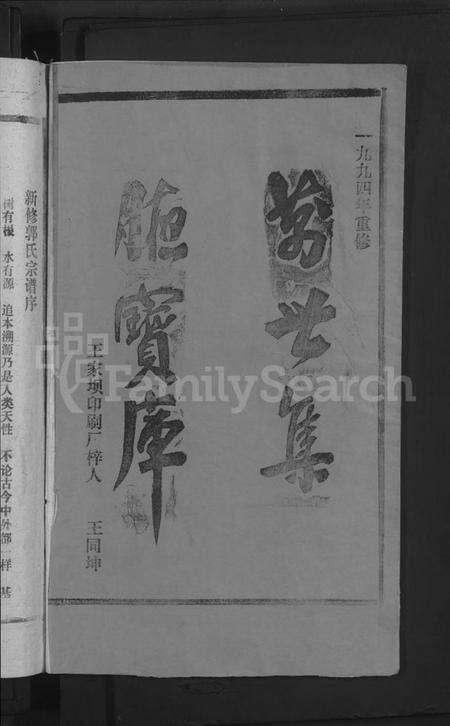 一九九四年重修
万世集
寶庫
王家坝印刷厂梓人 王同坤
新修郭氏宗谱序
树有根 水有源 追本溯源乃是人类天性 不论古今中外都一样 基
FamilySearch